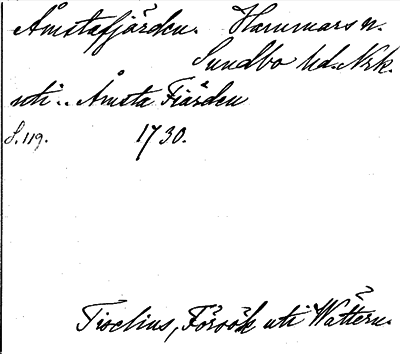 Åmstafjärden. Hammars sn.
Sundbo hd. Nrk.
uti .. Åmsta Fiärden
S. 119. 1730.
Tiselius, Försök uti Wättern.